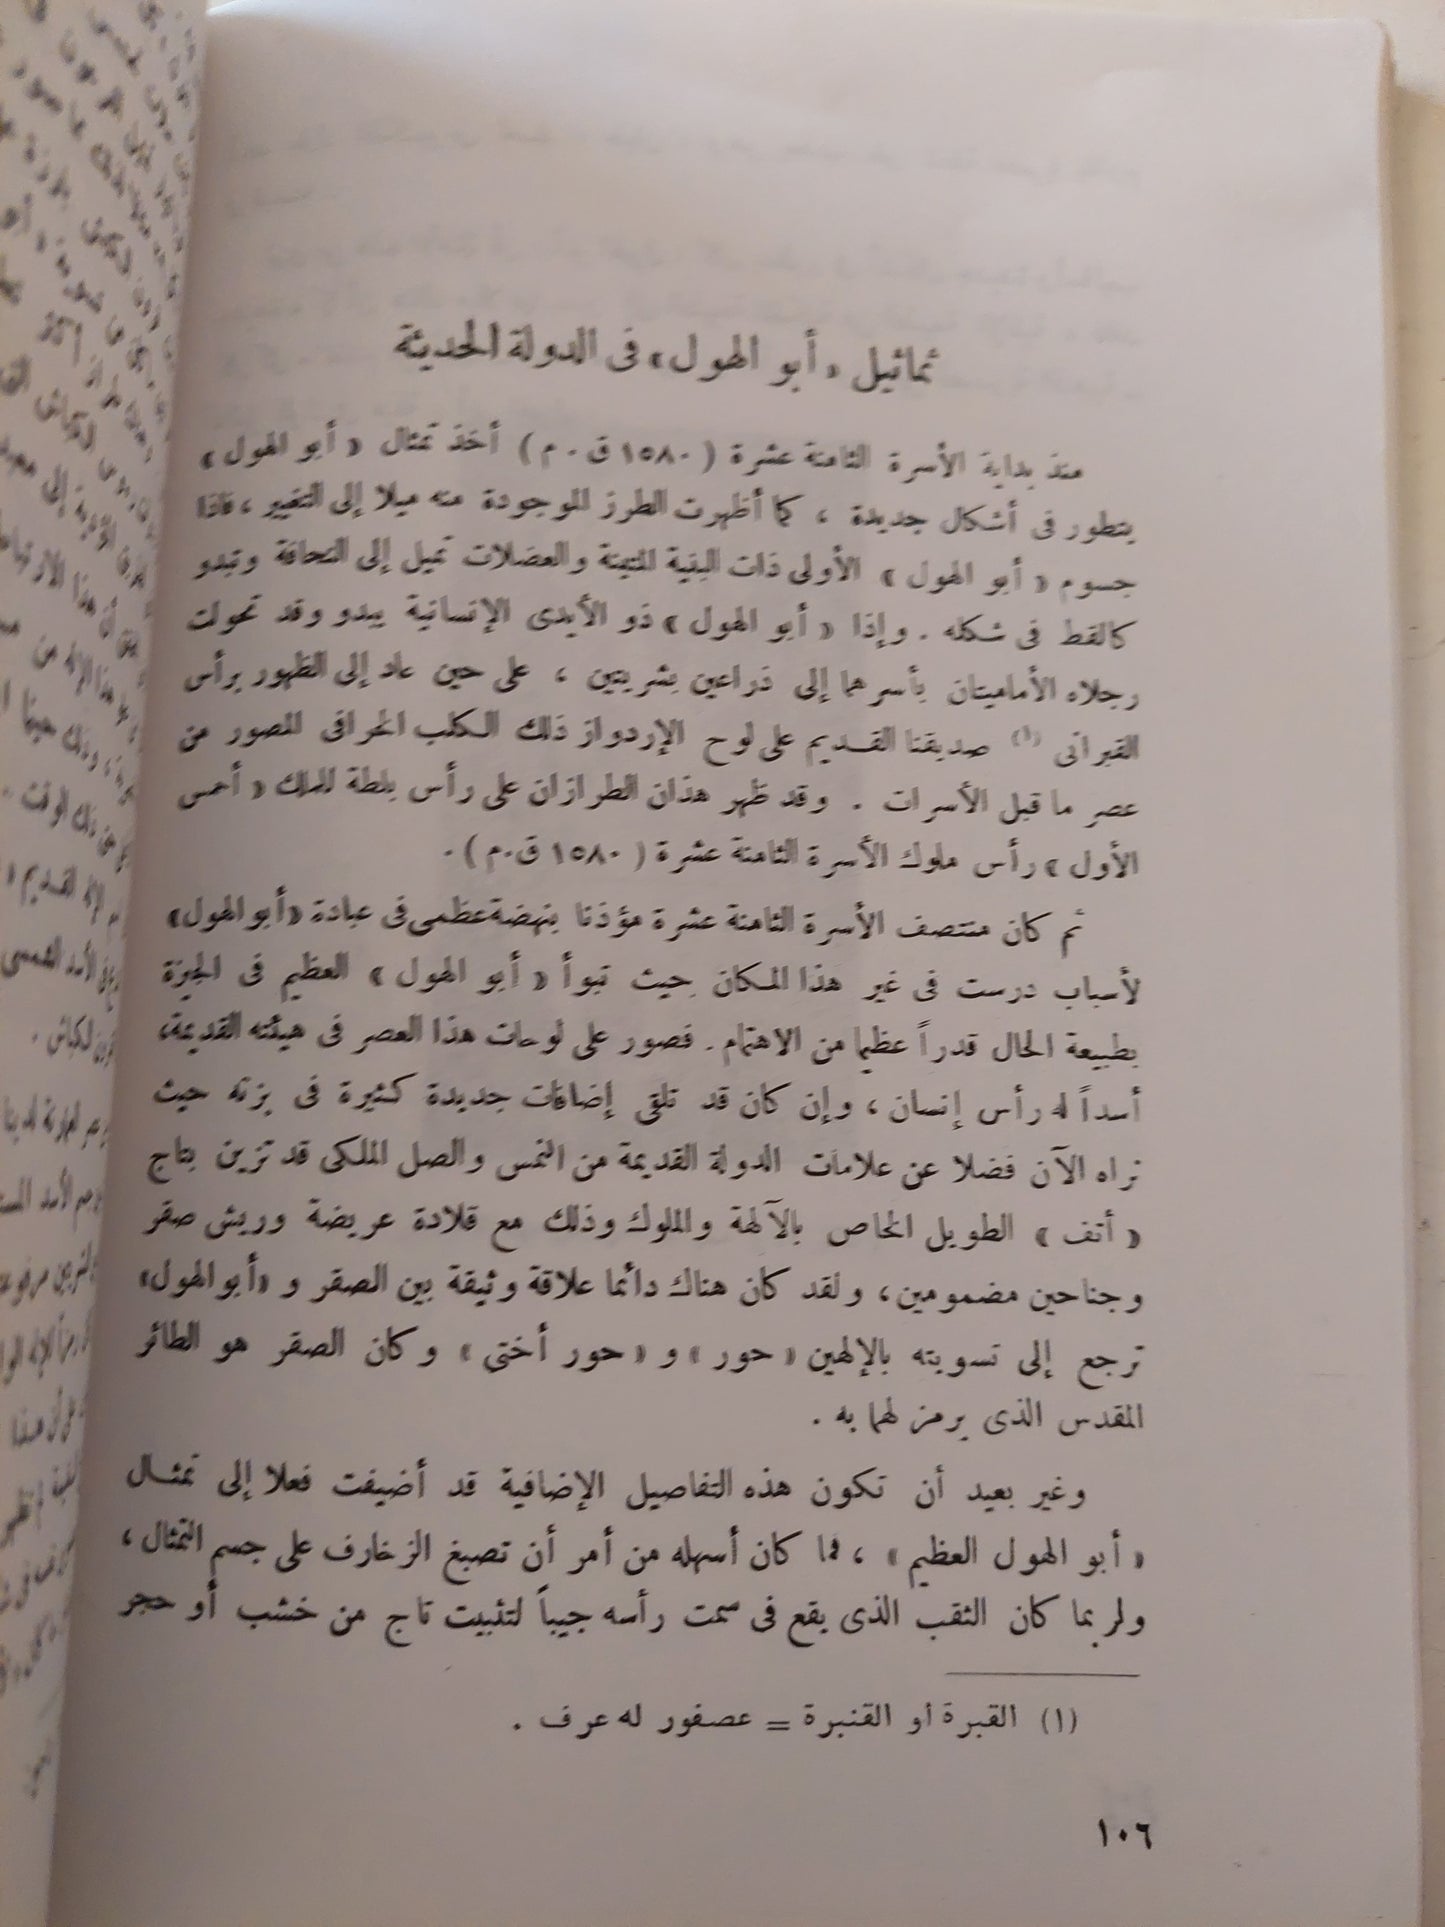 تماثيل « أبو الهول » فى الدولة الحديثة
منذ بداية الأسرة الثامنة عشرة ( ١٥٨٠ ق . م ) أخذ تمثال « أبو الهول »
يتطور فى أشكال جديدة ، كما أظهرت الطرز الموجودة منه ميلا إلى التغيير ، فاذا
جسوم « أبو الهول » الأولى ذات البنية المتينة والعضلات تميل إلى النحافة وتبدو
كالقط فى شكله . وإذا « أبو الهول » ذو الأيدى الإنسانية يبدو وقد تحولت
رجلاه الأماميتان بأسرهما إلى ذراعين بشريتين ، على حين عاد إلى الظهور برأس
القبرانى (١) صديقنا القديم على لوح الإردواز ذلك الكلب الخرافى المصور من
عصر ما قبل الأسرات . وقد ظهر هذان الطرازان على رأس بلطة للملك « أحمس
الأول » رأس ملوك الأسرة الثامنة عشرة ( ١٥٨٠ ق.م ) .
ثم كان منتصف الأسرة الثامنة عشرة مؤذنا بنهضة عظمى فى عبادة «أبو الهول»
لأسباب درست فى غير هذا المكان حيث تبوأ « أبو الهول » العظيم فى الجيزة
بطبيعة الحال قدراً عظيما من الاهتمام . فصور على لوحات هذا العصر فى هيئته القديمة،
أسداً له رأس إنسان ، وإن كان قد تلقى إضافات جديدة كثيرة فى بزته حيث
نراه الآن فضلا عن علامات الدولة القديمة من النمس والصل الملكى قد تزين بتاج
« أتف » الطويل الخاص بالآلهة والملوك وذلك مع قلادة عريضة وريش صقر
وجناحين مضمومين ، ولقد كان هناك دائما علاقة وثيقة بين الصقر و «أبو الهول»
ترجع إلى تسويته بالإلهين « حور » و « حور أختى » وكان الصقر هو الطائر
المقدس الذى يرمز لهما به .
وغير بعيد أن تكون هذه التفاصيل الإضافية قد أضيفت فعلا إلى تمثال
« أبو الهول العظيم » ، فما كان أسهله من أمر أن تصبغ الزخارف على جسم التمثال ،
ولربما كان الثقب الذى يقع فى سمت رأسه جيباً لتثبيت تاج من خشب أو حجر
(١) القبرة أو القنبرة = عصفور له عرف .
١٠٦